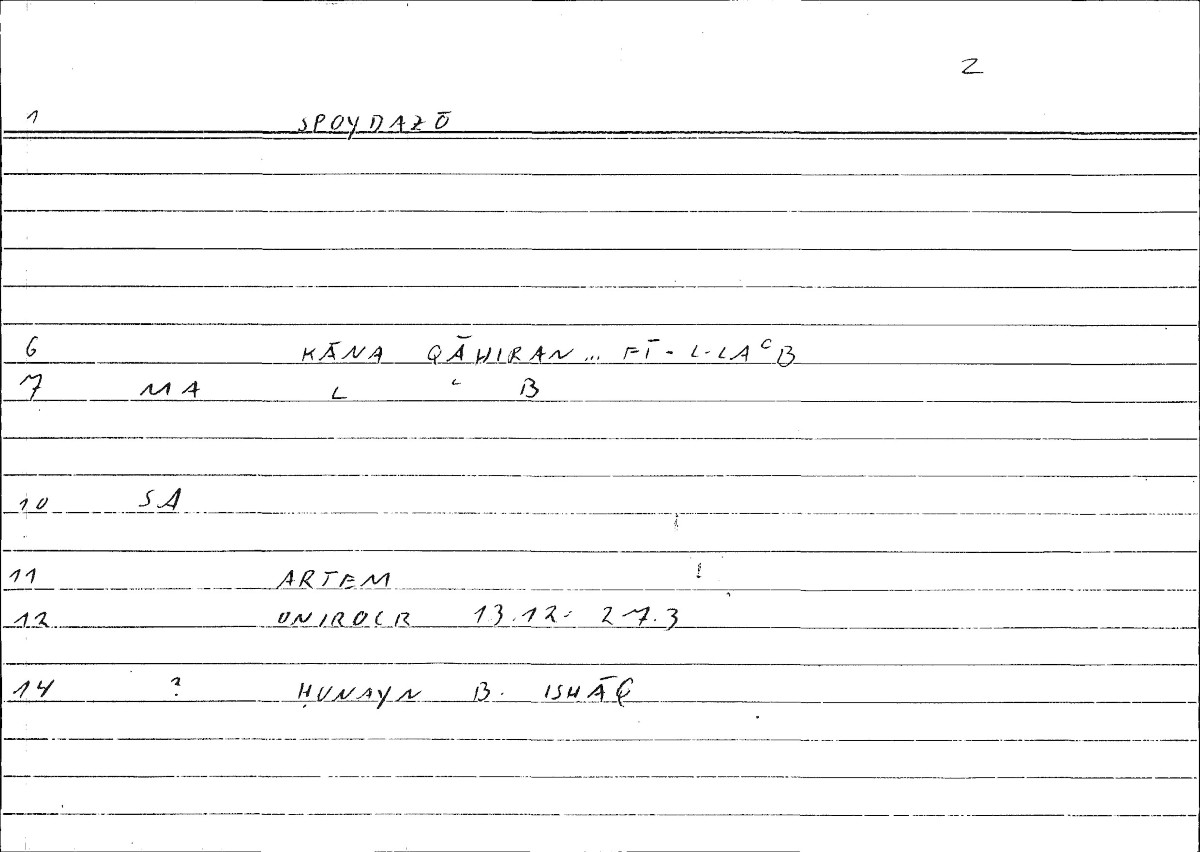 2
1 SPOYDAZŌ
6 KĀNA QĀHIRAN... FĪ-L-LAᶜB
7 MA L ᶜ B
10 SA
11 ARTEM
12 ONIROCR 13.12 - 27.3
14 ? ḤUNAYN B. ISḤĀQ